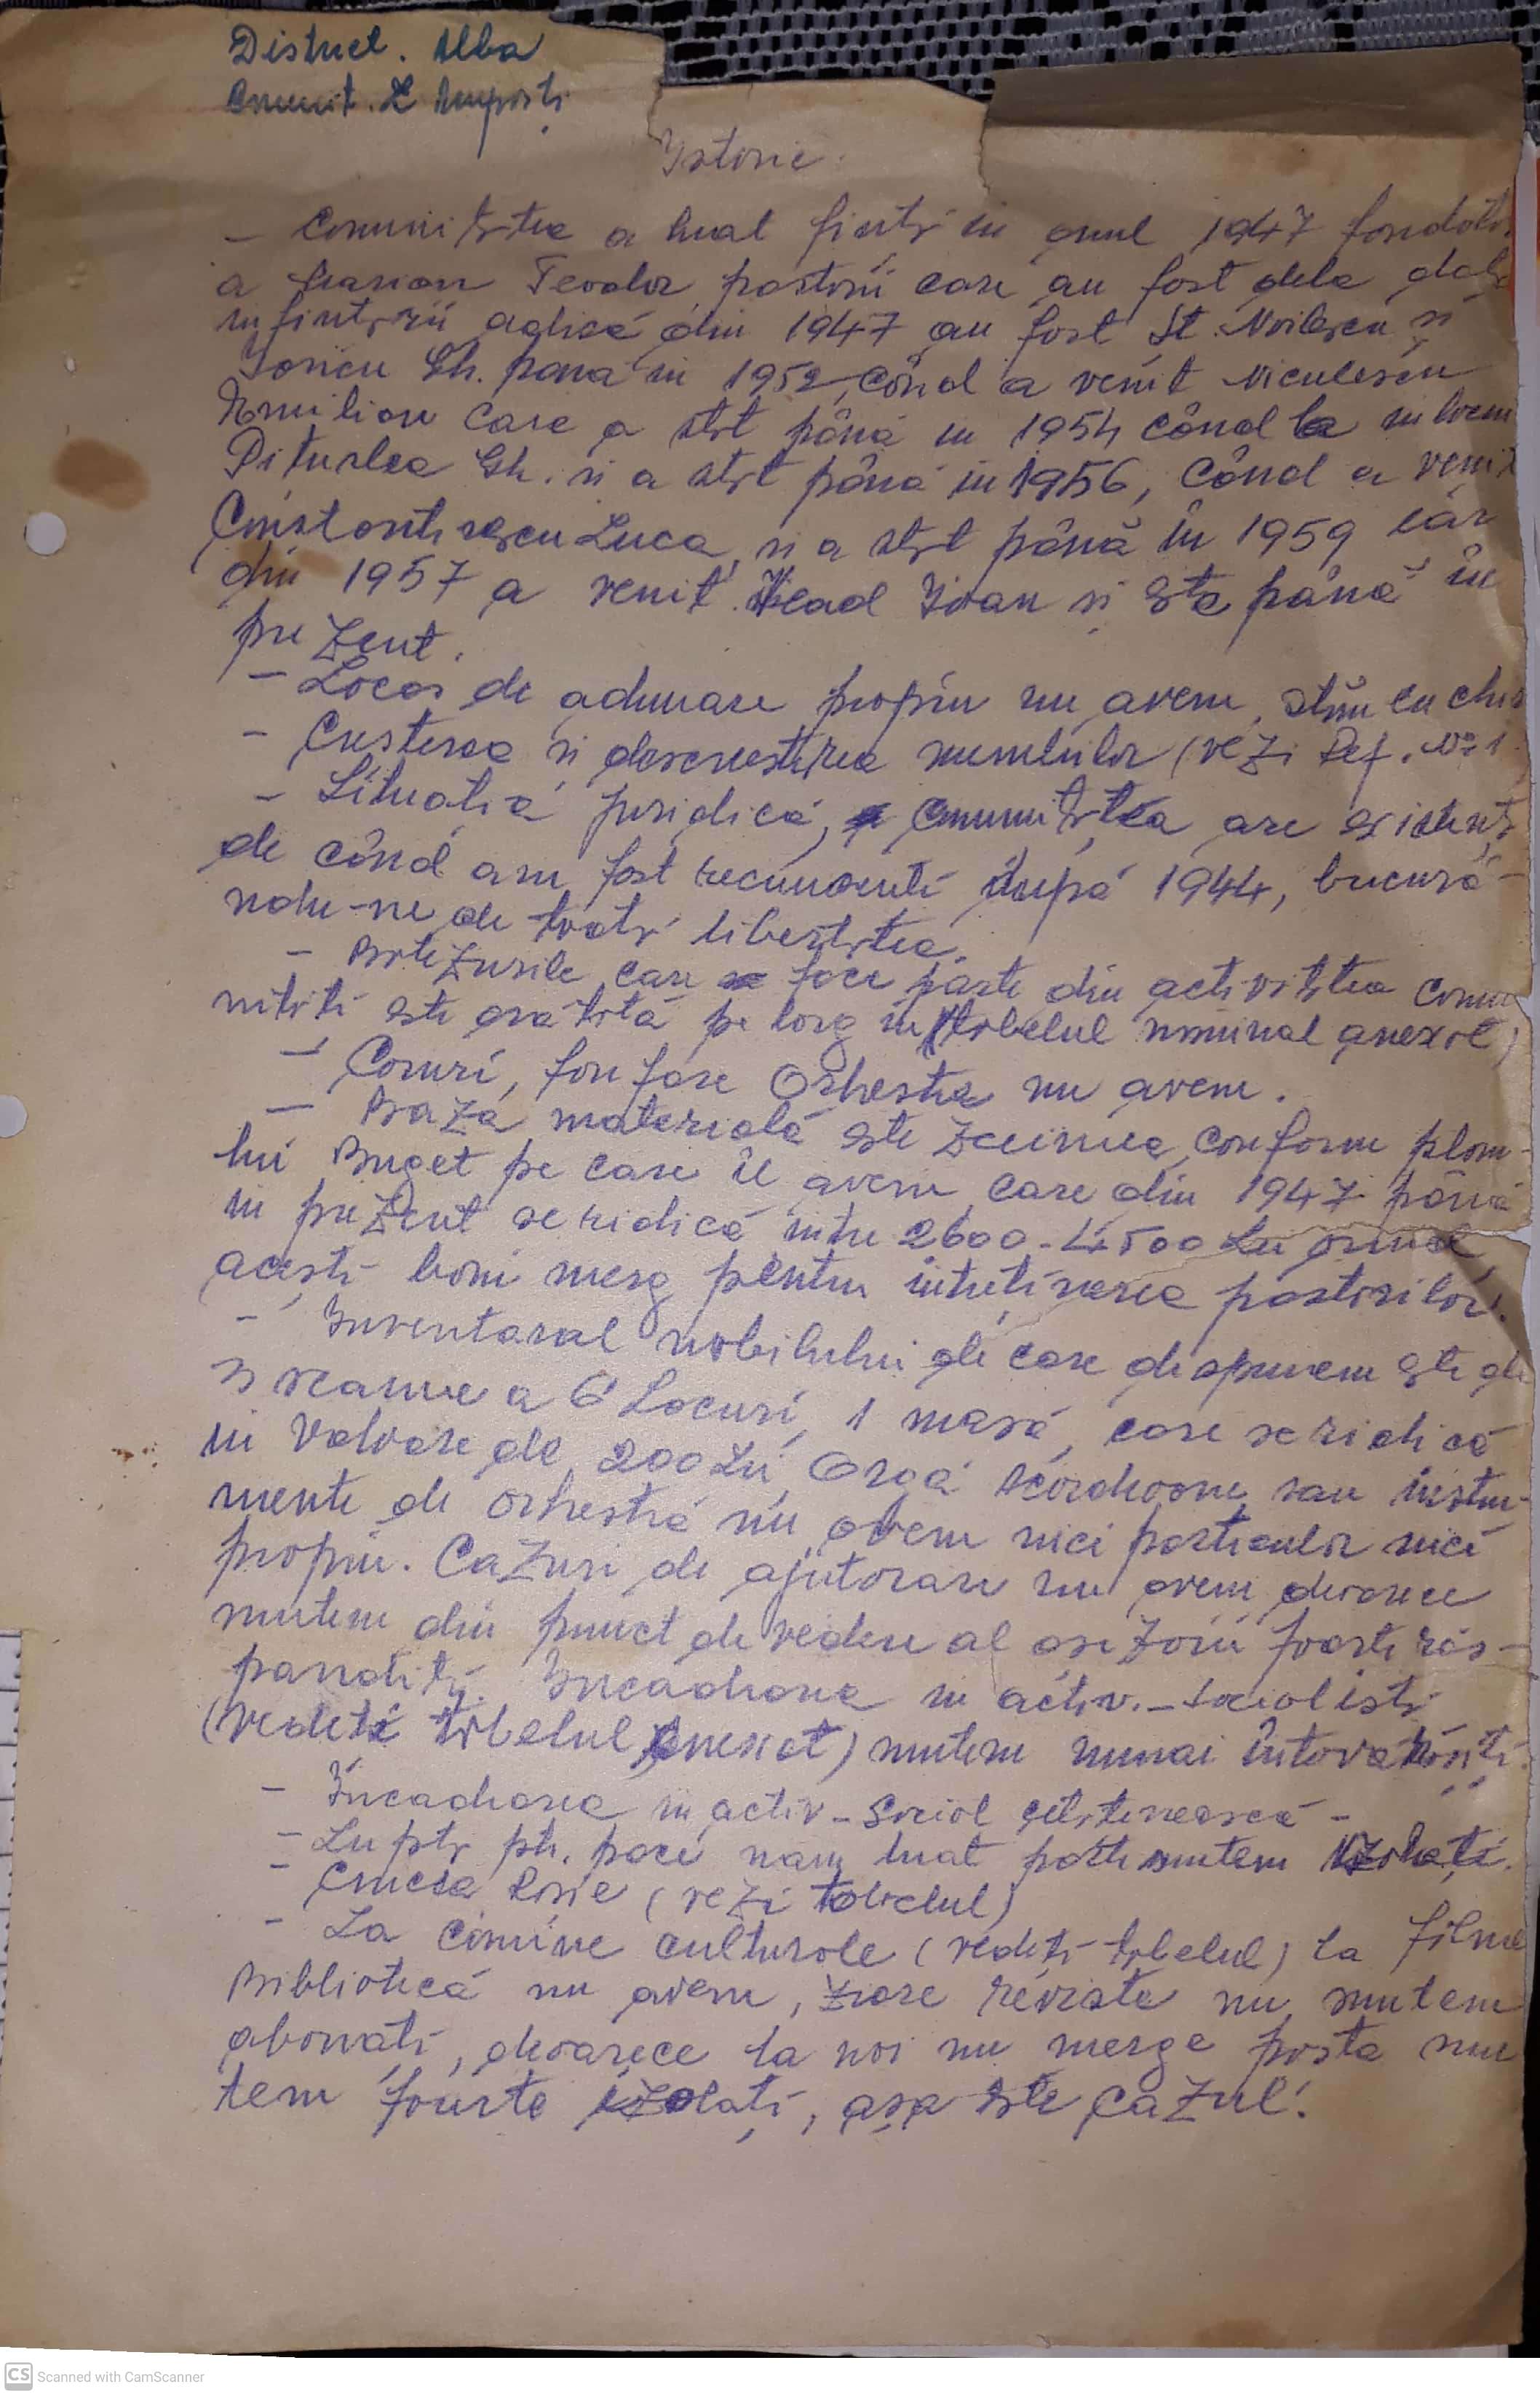 District. Alba
Comunit. Z
Istoric.
– Comunitatea a luat ființă în anul 1947 fondator
a Marian Teodor, pastorii care au fost dela data
înființării adică din 1947 au fost St. Noilescu și
Gh. pana în 1952, când a venit Niculescu
Emilian care a stat până în 1954 când la
Gh. și a stat până în 1956, când a venit
Constantinescu Luca, și a stat până în 1959 iar
din 1957 a venit Vlad Ioan și este până în
prezent.
– Locas de adunare propriu nu avem, stăm cu chi
– Cresterea și descresterea membrilor (vezi Ref. No 1
– Situatia juridică, comunitatea are existență
de când am fost recunoscuti după 1944, bucură-
ndu-ne de toată libertatea.
– Botezurile care face parte din activitatea comu
nității este arătată pe larg în tabelul nominal anexat)
– Coruri, fanfare Orhestra nu avem.
– Baza materială este zecimea, conform planu-
lui Buget pe care îl avem care din 1947 până
în prezent se ridică intre 2600-4500 Lei anual,
acești bani merg pentru intreținerea pastorilor.
– Inventarul mobilului de care dispunem este de
3 scaune a 6 Locuri, 1 masă, care se ridică
în Valoare de 200 Lei, Orgă Acordeoane, sau instru-
mente de orhestră nu avem nici particular nici
propriu. Cazuri de ajutorare nu avem, deoarece
suntem din punct de vedere al asezarii foarte răs-
panditi. Incadrarea in activ.-socialistă
(vedeti tabelul anexat) suntem numai întovărășiți.
– Încadrarea in activ-social cetătenească –
– Lupta pt. pace nam luat parte suntem Izolați.
– Crucea Rosie (vezi tabelul)
– La cămine culturale (vedeți tabelul) la filme
Bibliotecă nu avem, ziare reviste nu suntem
abonați, deoarece la noi nu merge posta sun
tem foarte izolați, așa este cazul!
CS Scanned with CamScanner